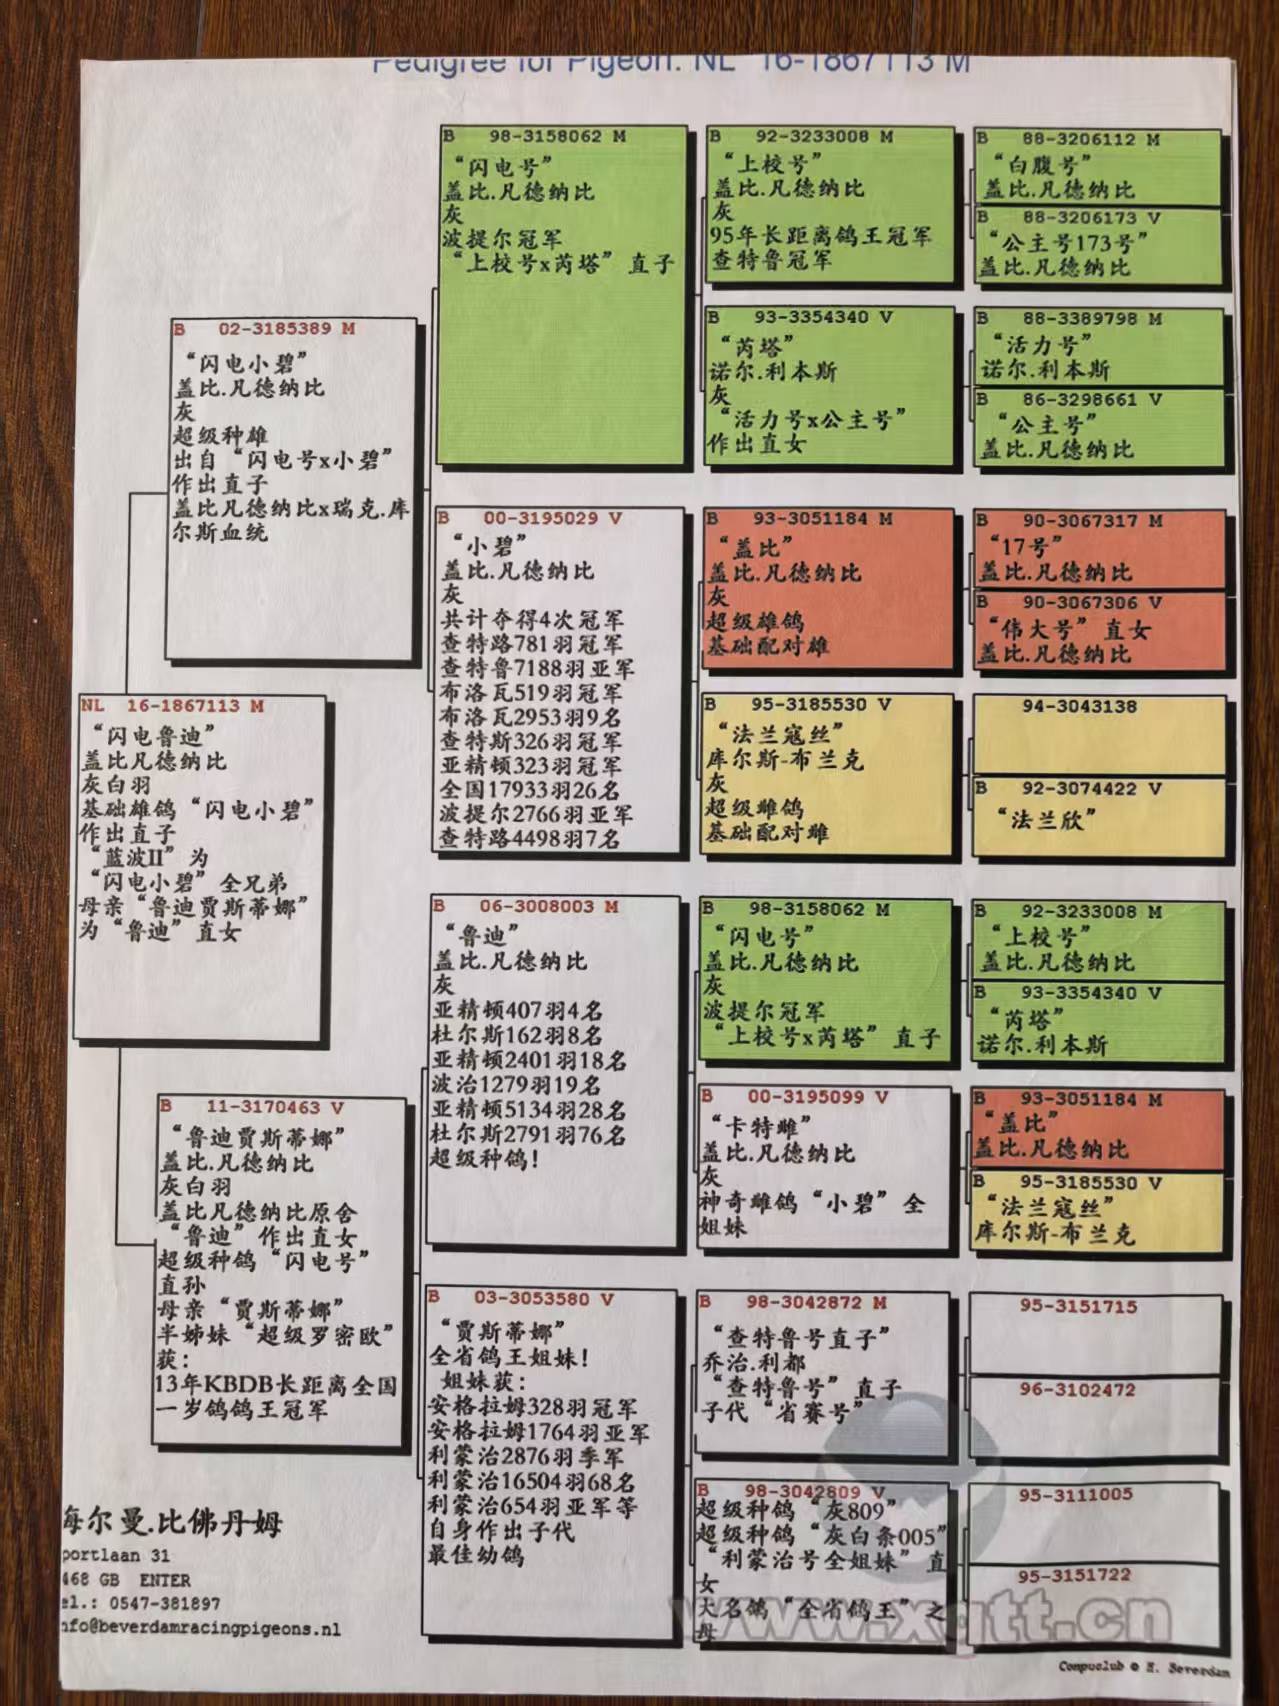 Pedigree for Pigeon: NL 16-1867113 M
NL 16-1867113 M
“闪电鲁迪”
盖比凡德纳比
灰白羽
基础雄鸽“闪电小碧”
作出直子
“蓝波II”为
“闪电小碧”全兄弟
母亲“鲁迪贾斯蒂娜”
为“鲁迪”直女
B 02-3185389 M
“闪电小碧”
盖比.凡德纳比
灰
超级种雄
出自“闪电号x小碧”
作出直子
盖比凡德纳比x瑞克.库
尔斯血统
B 11-3170463 V
“鲁迪贾斯蒂娜”
盖比.凡德纳比
灰白羽
盖比凡德纳比原舍
“鲁迪”作出直女
超级种鸽“闪电号”
直孙
母亲“贾斯蒂娜”
半姊妹“超级罗密欧”
获：
13年KBDB长距离全国
一岁鸽鸽王冠军
B 98-3158062 M
“闪电号”
盖比.凡德纳比
灰
波提尔冠军
“上校号x芮塔”直子
B 00-3195029 V
“小碧”
盖比.凡德纳比
灰
共计夺得4次冠军
查特路781羽冠军
查特鲁7188羽亚军
布洛瓦519羽冠军
布洛瓦2953羽9名
查特斯326羽冠军
亚精顿323羽冠军
全国17933羽26名
波提尔2766羽亚军
查特路4498羽7名
B 06-3008003 M
“鲁迪”
盖比.凡德纳比
灰
亚精顿407羽4名
杜尔斯162羽8名
亚精顿2401羽18名
波治1279羽19名
亚精顿5134羽28名
杜尔斯2791羽76名
超级种鸽！
B 03-3053580 V
“贾斯蒂娜”
全省鸽王姐妹！
姐妹获：
安格拉姆328羽冠军
安格拉姆1764羽亚军
利蒙治2876羽季军
利蒙治16504羽68名
利蒙治654羽亚军等
自身作出子代
最佳幼鸽
B 92-3233008 M
“上校号”
盖比.凡德纳比
灰
95年长距离鸽王冠军
查特鲁冠军
B 93-3354340 V
“芮塔”
诺尔.利本斯
灰
“活力号x公主号”
作出直女
B 93-3051184 M
“盖比”
盖比.凡德纳比
灰
超级雄鸽
基础配对雄
B 95-3185530 V
“法兰寇丝”
库尔斯-布兰克
灰
超级雌鸽
基础配对雌
B 98-3158062 M
“闪电号”
盖比.凡德纳比
灰
波提尔冠军
“上校号x芮塔”直子
B 00-3195099 V
“卡特雌”
盖比.凡德纳比
灰
神奇雌鸽“小碧”全
姐妹
B 98-3042872 M
“查特鲁号直子”
乔治.利都
“查特鲁号”直子
子代“省赛号”
B 98-3042809 V
超级种鸽“灰809”
超级种鸽“灰白条005”
“利蒙治号全姐妹”直
女
大名鸽“全省鸽王”之
母
B 88-3206112 M
“白腹号”
盖比.凡德纳比
B 88-3206173 V
“公主号173号”
盖比.凡德纳比
B 88-3389798 M
“活力号”
诺尔.利本斯
B 86-3298661 V
“公主号”
盖比.凡德纳比
B 90-3067317 M
“17号”
盖比.凡德纳比
B 90-3067306 V
“伟大号”直女
盖比.凡德纳比
B 94-3043138
B 92-3074422 V
“法兰欣”
B 92-3233008 M
“上校号”
盖比.凡德纳比
B 93-3354340 V
“芮塔”
诺尔.利本斯
B 93-3051184 M
“盖比”
盖比.凡德纳比
B 95-3185530 V
“法兰寇丝”
库尔斯-布兰克
95-3151715
96-3102472
95-3111005
95-3151722
海尔曼.比佛丹姆
portlaan 31
468 GB ENTER
el.: 0547-381897
nfo@beverdamracingpigeons.nl
www.xgtt.cn
Compuclub © H. Beverdam